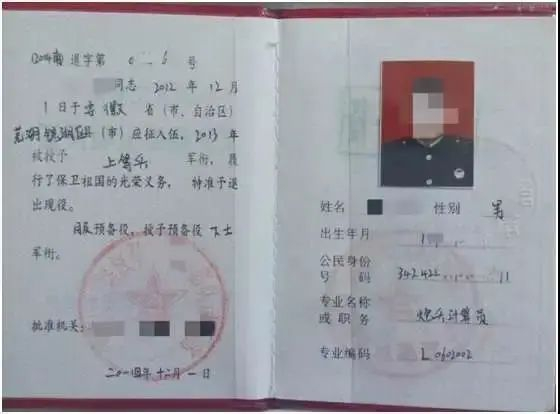 退字第 0 6号
同志 2012 年 12 月
1 日于安徽 省(市、自治区)
芜湖镜湖区县(市)应征入伍,2013 年
被授予 上等兵 军衔,履
行了保卫祖国的光荣义务,特准予退
出现役。
服预备役,授予预备役 下士
军衔。
批准机关:
二〇一四年十二月一日
姓名 性别 男
出生年月 1
公民身份
号码 342422 11
专业名称
或职务 炮兵计算员
专业编码 L0602002